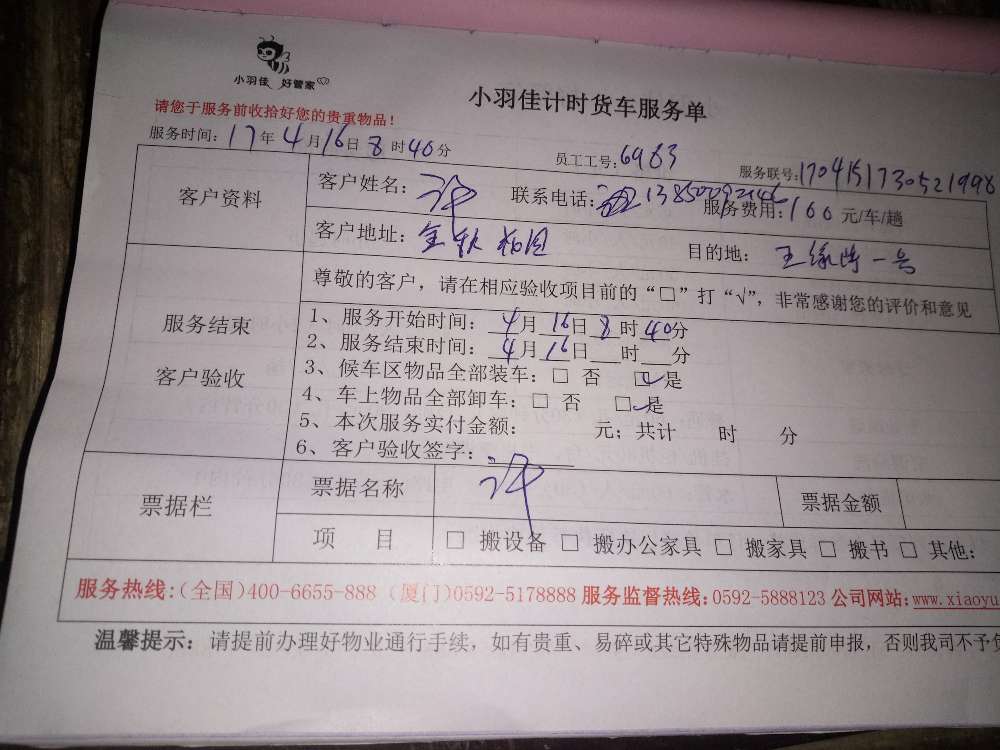 小羽佳 好管家
小羽佳计时货车服务单
请您于服务前收拾好您的贵重物品!
服务时间: 17年4月16日8时40分 员工工号:6983 服务联号:1704151730521998
客户资料 客户姓名: 许 联系电话: 服务费用:100元/车/趟
客户地址: 目的地: 一号
尊敬的客户，请在相应验收项目前的“□”打“√”，非常感谢您的评价和意见
服务结束
客户验收
1、服务开始时间: 4月16日8时40分
2、服务结束时间: 4月16日 时 分
3、候车区物品全部装车: □ 否 ☑是
4、车上物品全部卸车: □ 否 ☑是
5、本次服务实付金额: 元; 共计 时 分
6、客户验收签字: 许
票据栏 票据名称 票据金额
项 目 □ 搬设备 □ 搬办公家具 □ 搬家具 □ 搬书 □ 其他:
服务热线:(全国)400-6655-888 (厦门)0592-5178888 服务监督热线:0592-5888123 公司网站:www.xiaoyu
温馨提示: 请提前办理好物业通行手续，如有贵重、易碎或其它特殊物品请提前申报，否则我司不予